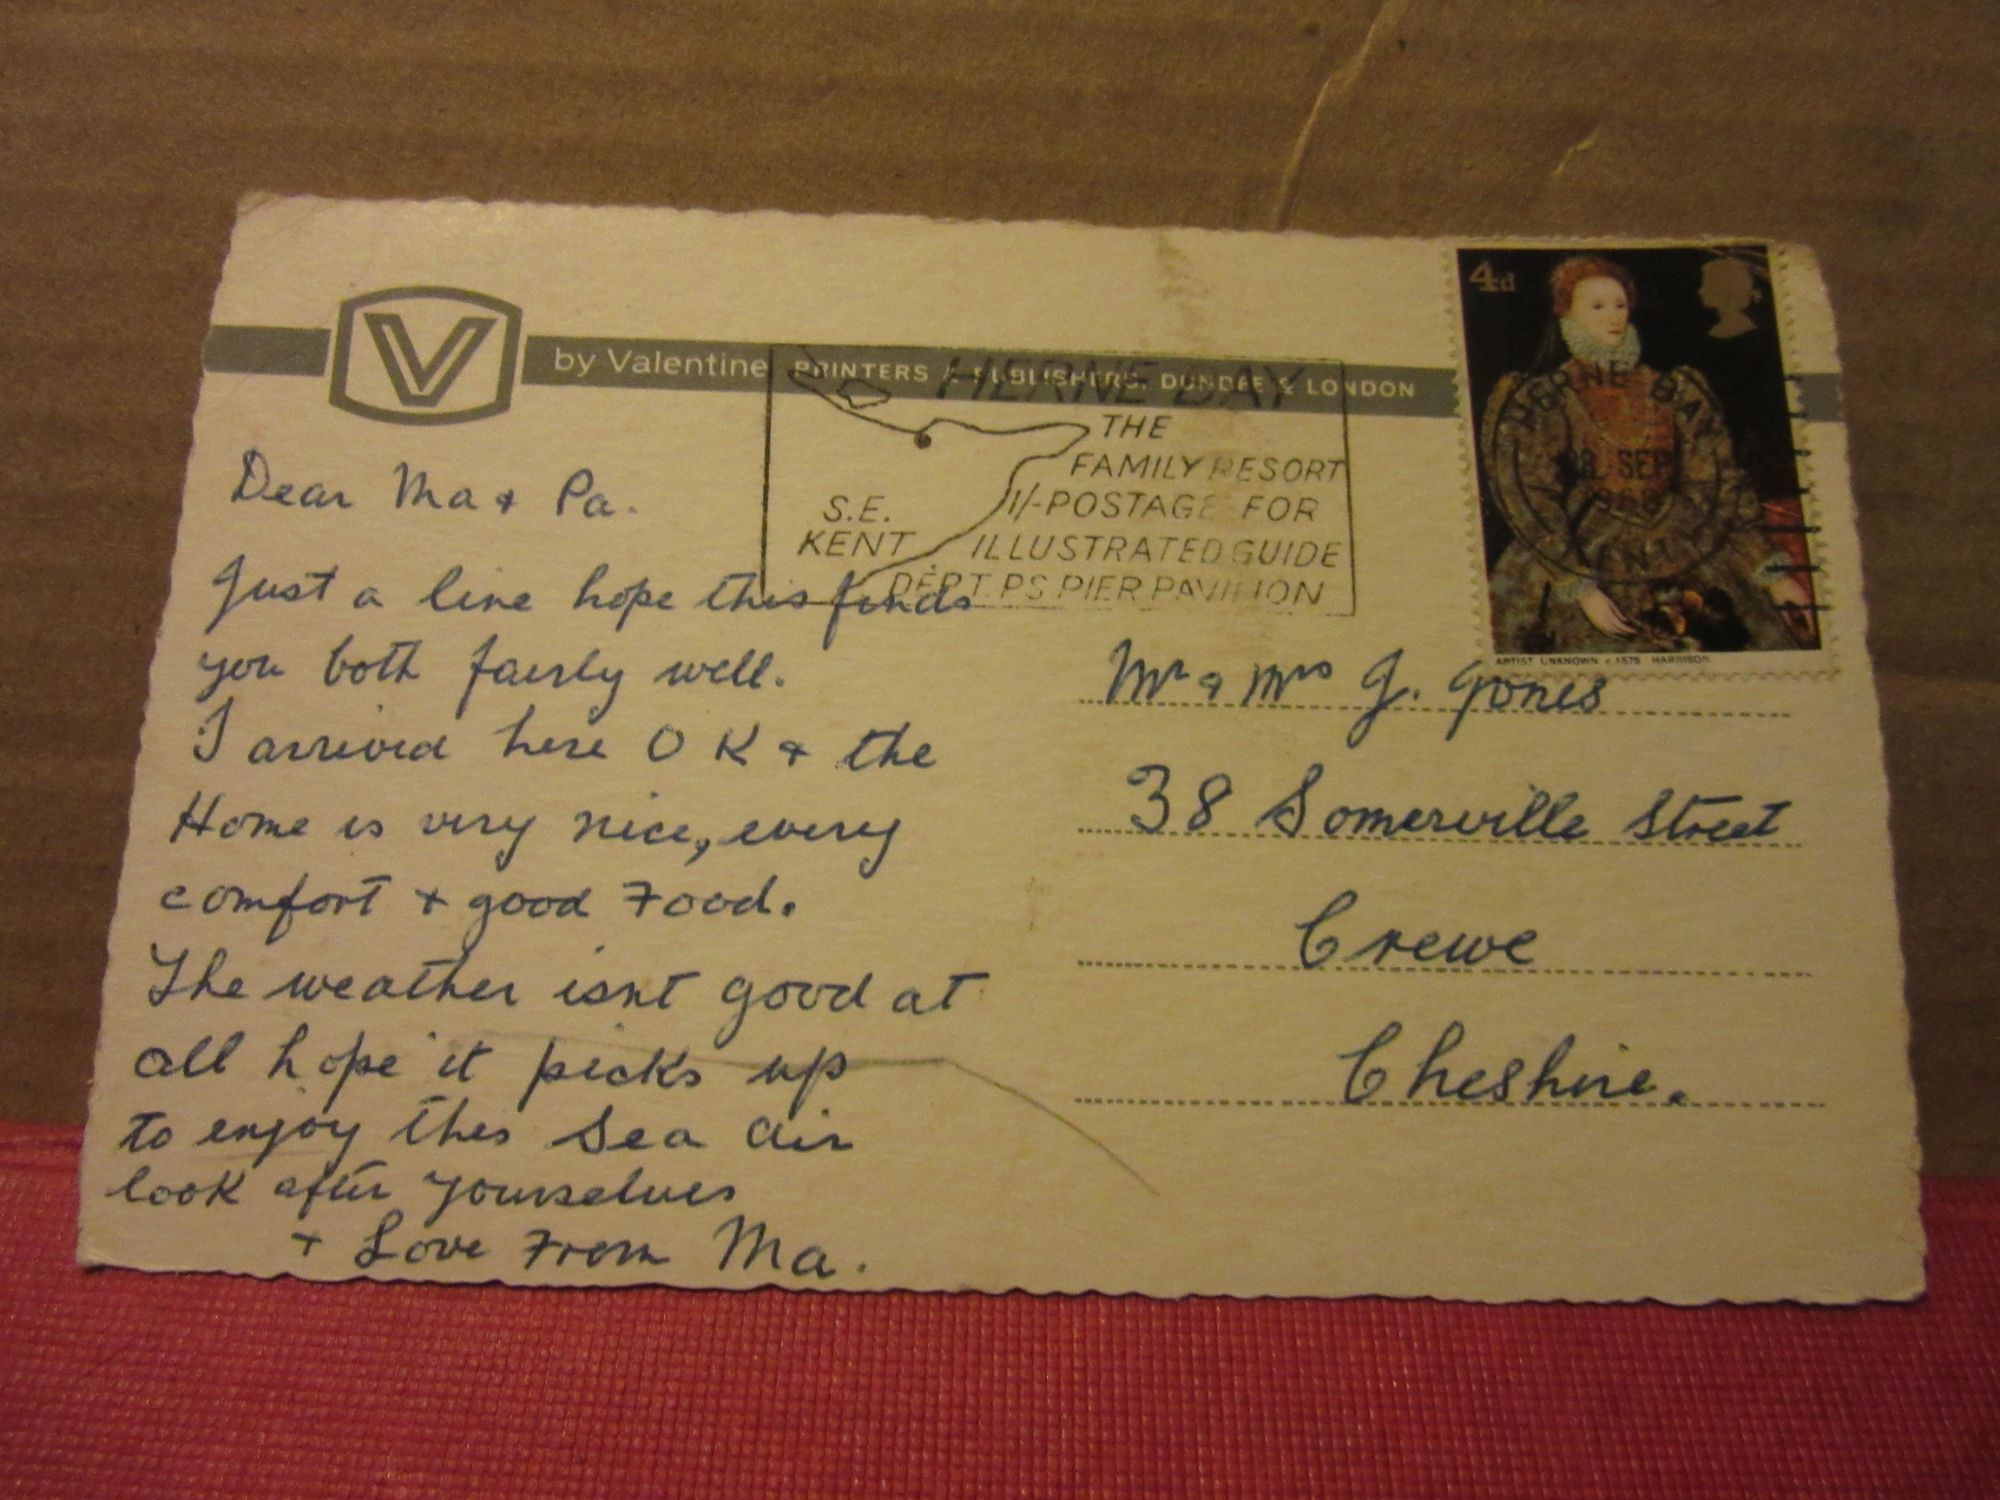 V by Valentine PRINTERS & PUBLISHERS, DUNDEE & LONDON
HERNE BAY
THE
FAMILY RESORT
1/-POSTAGE FOR
ILLUSTRATED GUIDE
DEPT. PS PIER PAVILION
S.E.
KENT
4d
HERNE BAY
SEP
1968
KENT
ARTIST UNKNOWN c.1575 HARRISON
Dear Ma + Pa.
Just a line hope this finds
you both fairly well.
I arrived here OK + the
Home is very nice, every
comfort + good Food.
The weather isnt good at
all hope it picks up
to enjoy this Sea air
look after yourselves
+ Love From Ma.
Mr & Mrs J. Jones
38 Somerville Street
Crewe
Cheshire.